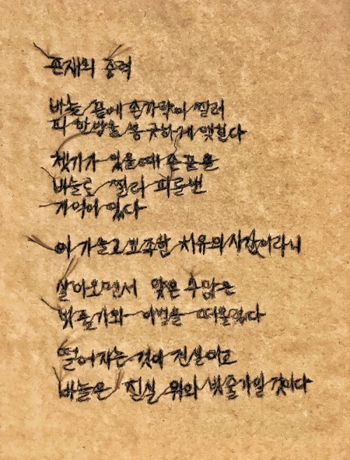 존재의 중력
바늘 끝에 손가락이 찔려
피 한 방울 봉긋하게 맺혔다
쳇기가 있을 때 손끝을
바늘로 찔러 피를 뺀
기억이 있다
이 가늘고 뾰족함 치유의 시간이라니
살아오면서 맞은 수많은
빗줄기와 이별을 떠올렸다
떨어지는 것이 진실이고
바늘은 진실 위의 빗줄기일 것이다